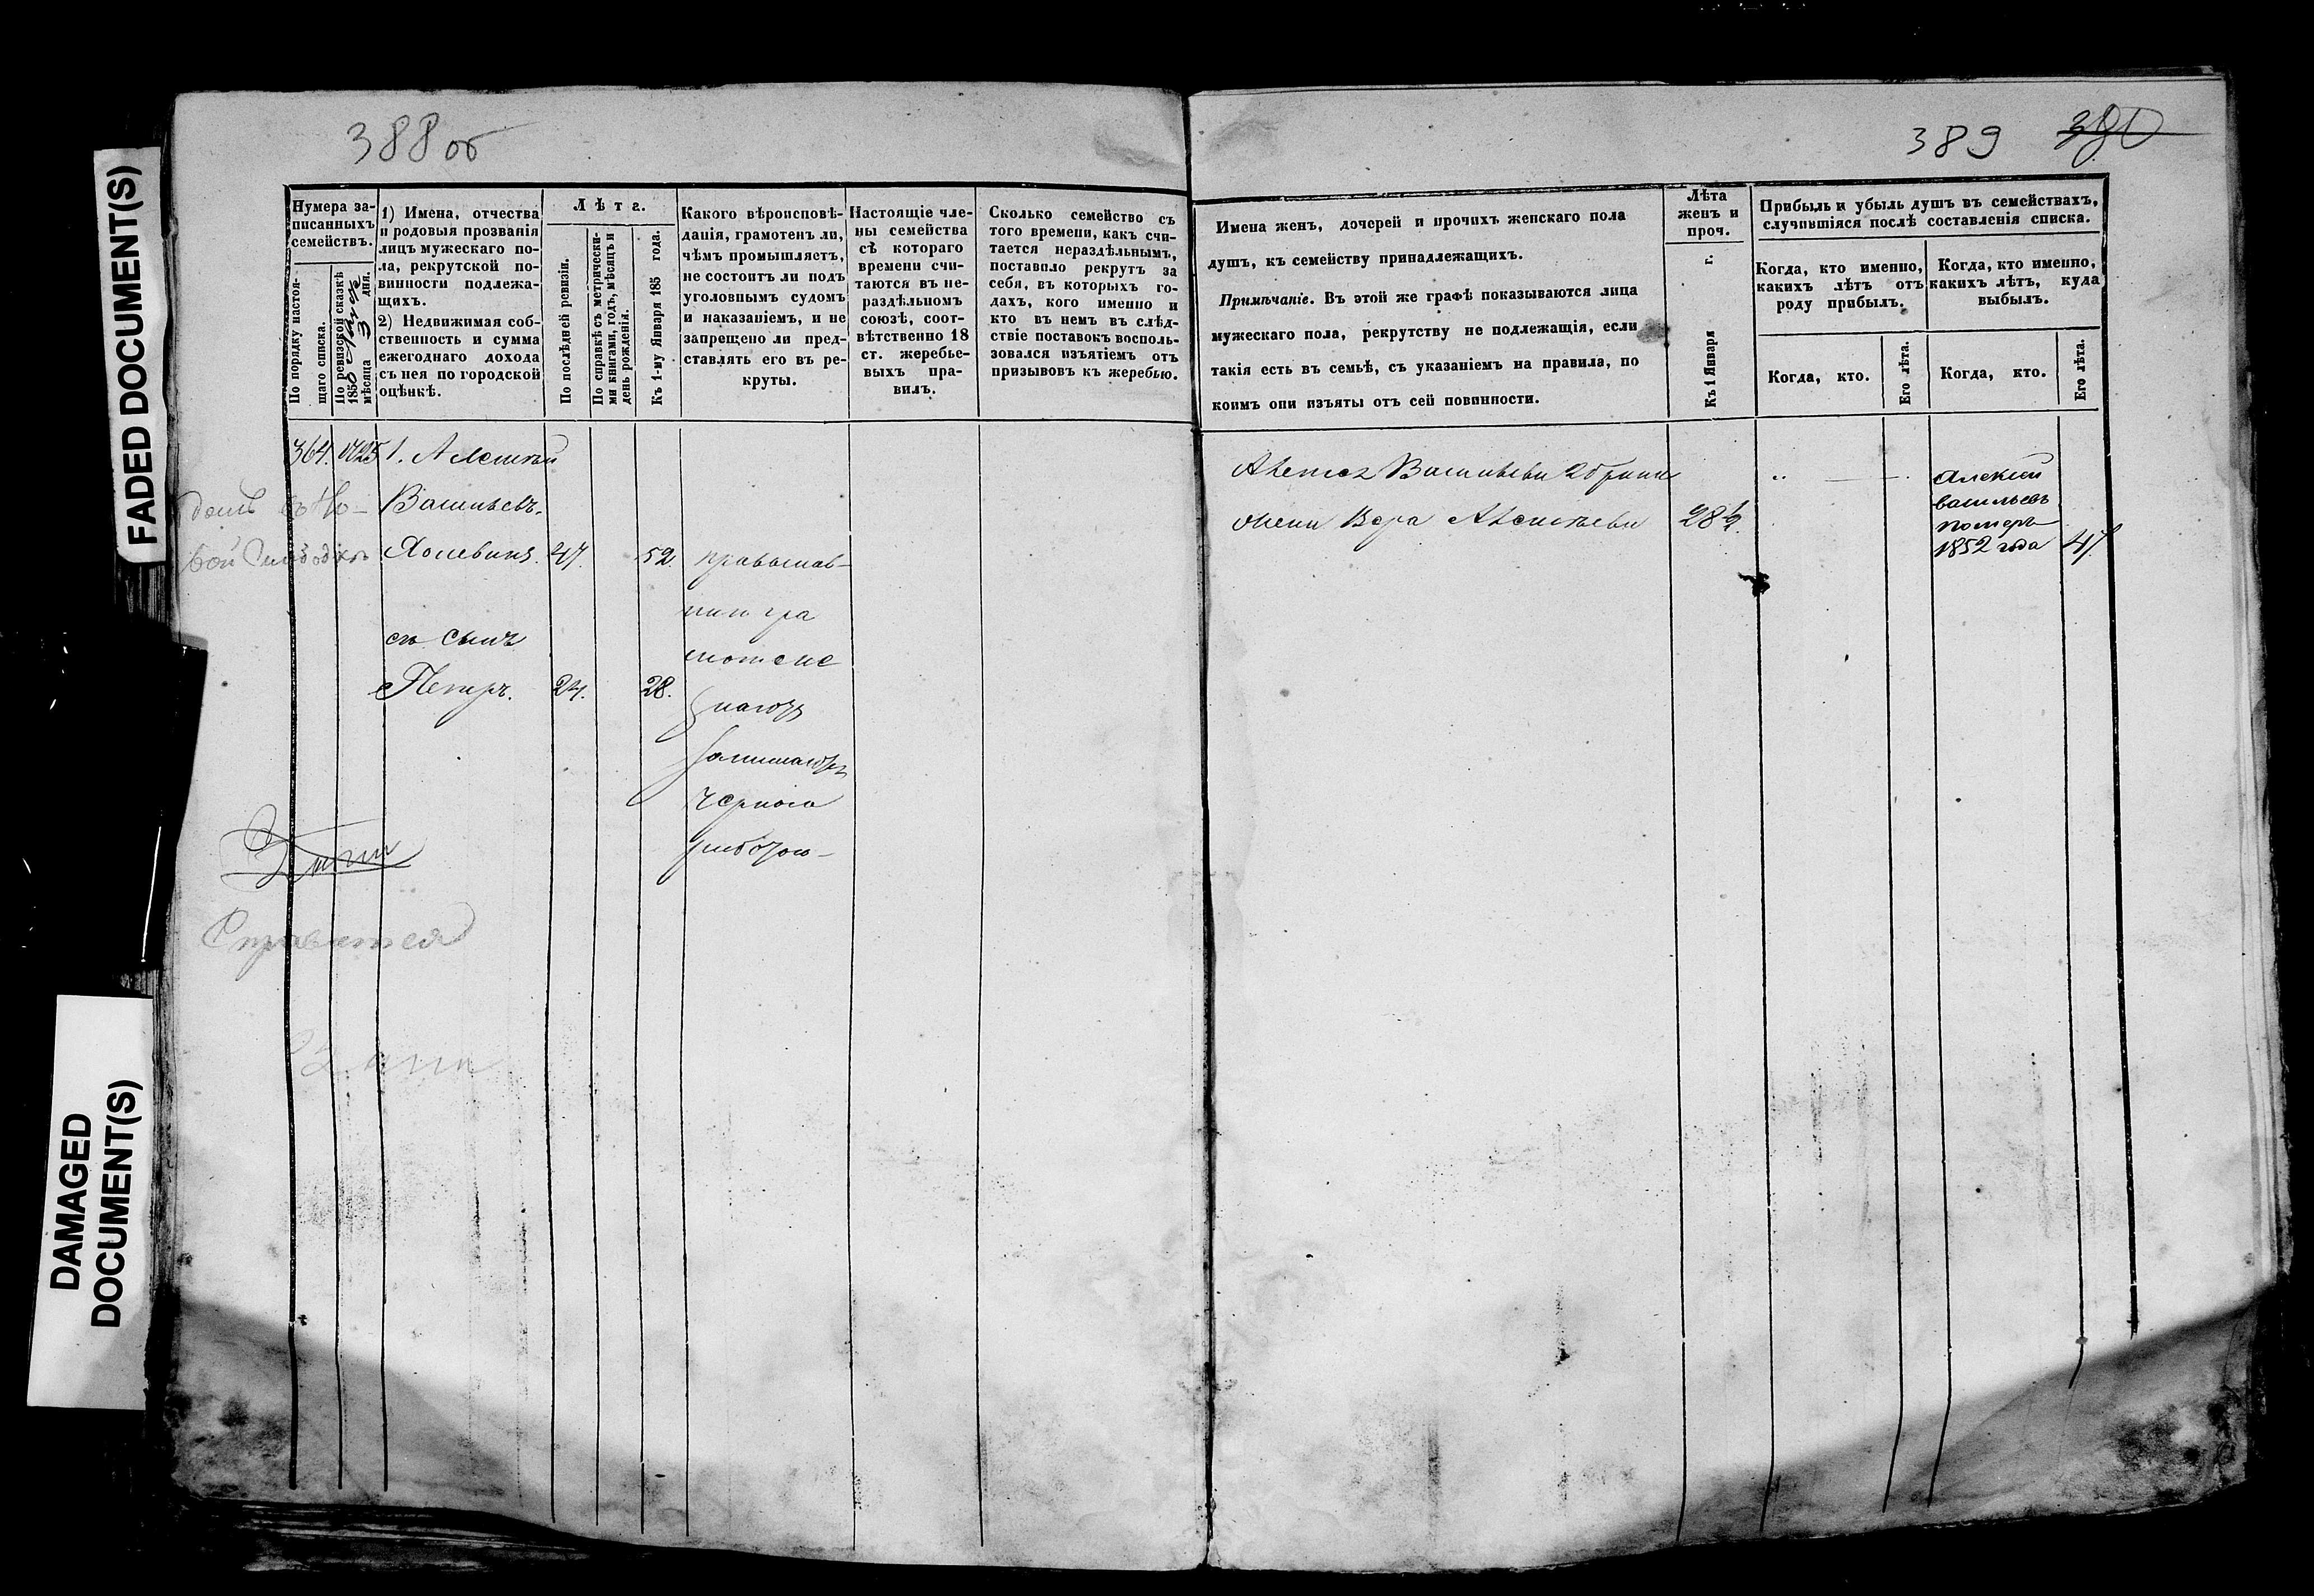 FADED DOCUMENT(S)
DAMAGED
DOCUMENT(S)
388 об
Нумера за-
писанныхъ
семействъ.
По порядку настоя-
щаго списка.
По ревизской сказкѣ
1850
мѣсяца 3 дня.
1) Имена, отчества
и родовыя прозванія
лицъ мужескаго по-
ла, рекрутской по-
винности подлежа-
щихъ.
2) Недвижимая соб-
ственность и сумма
ежегоднаго дохода
съ нея по городской
оцѣнкѣ.
Лѣта.
По послѣдней ревизіи.
По справкѣ съ метрически-
ми книгами, годъ, мѣсяцъ и
день рожденія.
Къ 1-му Января 185 года.
Какого вѣроисповѣ-
данія, грамотенъ ли,
чѣмъ промышляетъ,
не состоитъ ли подъ
уголовнымъ судомъ
и наказаніемъ, и не
запрещено ли пред-
ставлять его въ ре-
круты.
Настоящіе чле-
ны семейства
съ котораго
времени счи-
таются въ не-
раздѣльномъ
союзѣ, соот-
вѣтственно 18
ст. жеребье-
выхъ пра-
вилъ.
Сколько семейство съ
того времени, какъ счи-
тается нераздѣльнымъ,
поставило рекрутъ за
себя, въ которыхъ го-
дахъ, кого именно и
кто въ немъ въ слѣд-
ствіе поставокъ восполь-
зовался изъятіемъ отъ
призывовъ къ жеребью.
364.
1. Алексѣй
Васильевъ.
47. 52. православ-
съ сынъ
Петръ. 24. 28.
Справится
389 390
Имена женъ, дочерей и прочихъ женскаго пола
душъ, къ семейству принадлежащихъ.
Примѣчаніе. Въ этой же графѣ показываются лица
мужескаго пола, рекрутству не подлежащія, если
такія есть въ семьѣ, съ указаніемъ на правила, по
коимъ они изъяты отъ сей повинности.
Лѣта
женъ и
проч.
Къ 1 Января г.
Прибыль и убыль душъ въ семействахъ,
случившіяся послѣ составленія списка.
Когда, кто именно,
какихъ лѣтъ отъ
роду прибылъ.
Когда, кто именно,
какихъ лѣтъ, куда
выбылъ.
Когда, кто.
Его лѣта.
Когда, кто.
Его лѣта.
жена Вера Алексѣева 28½
Алексѣй
васильевъ
померъ
1852 года 47.